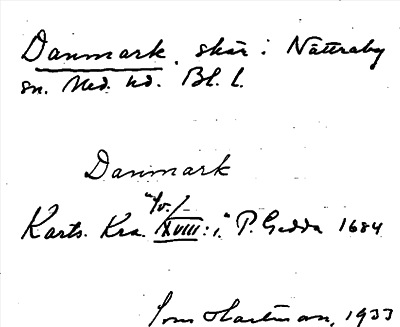 Danmark, skär i Nättraby
sn. Med. hd. Bl. l.
Danmark
Karts. Kra. XVIII: 1, P. Gedda 1684
Hartman, 1933